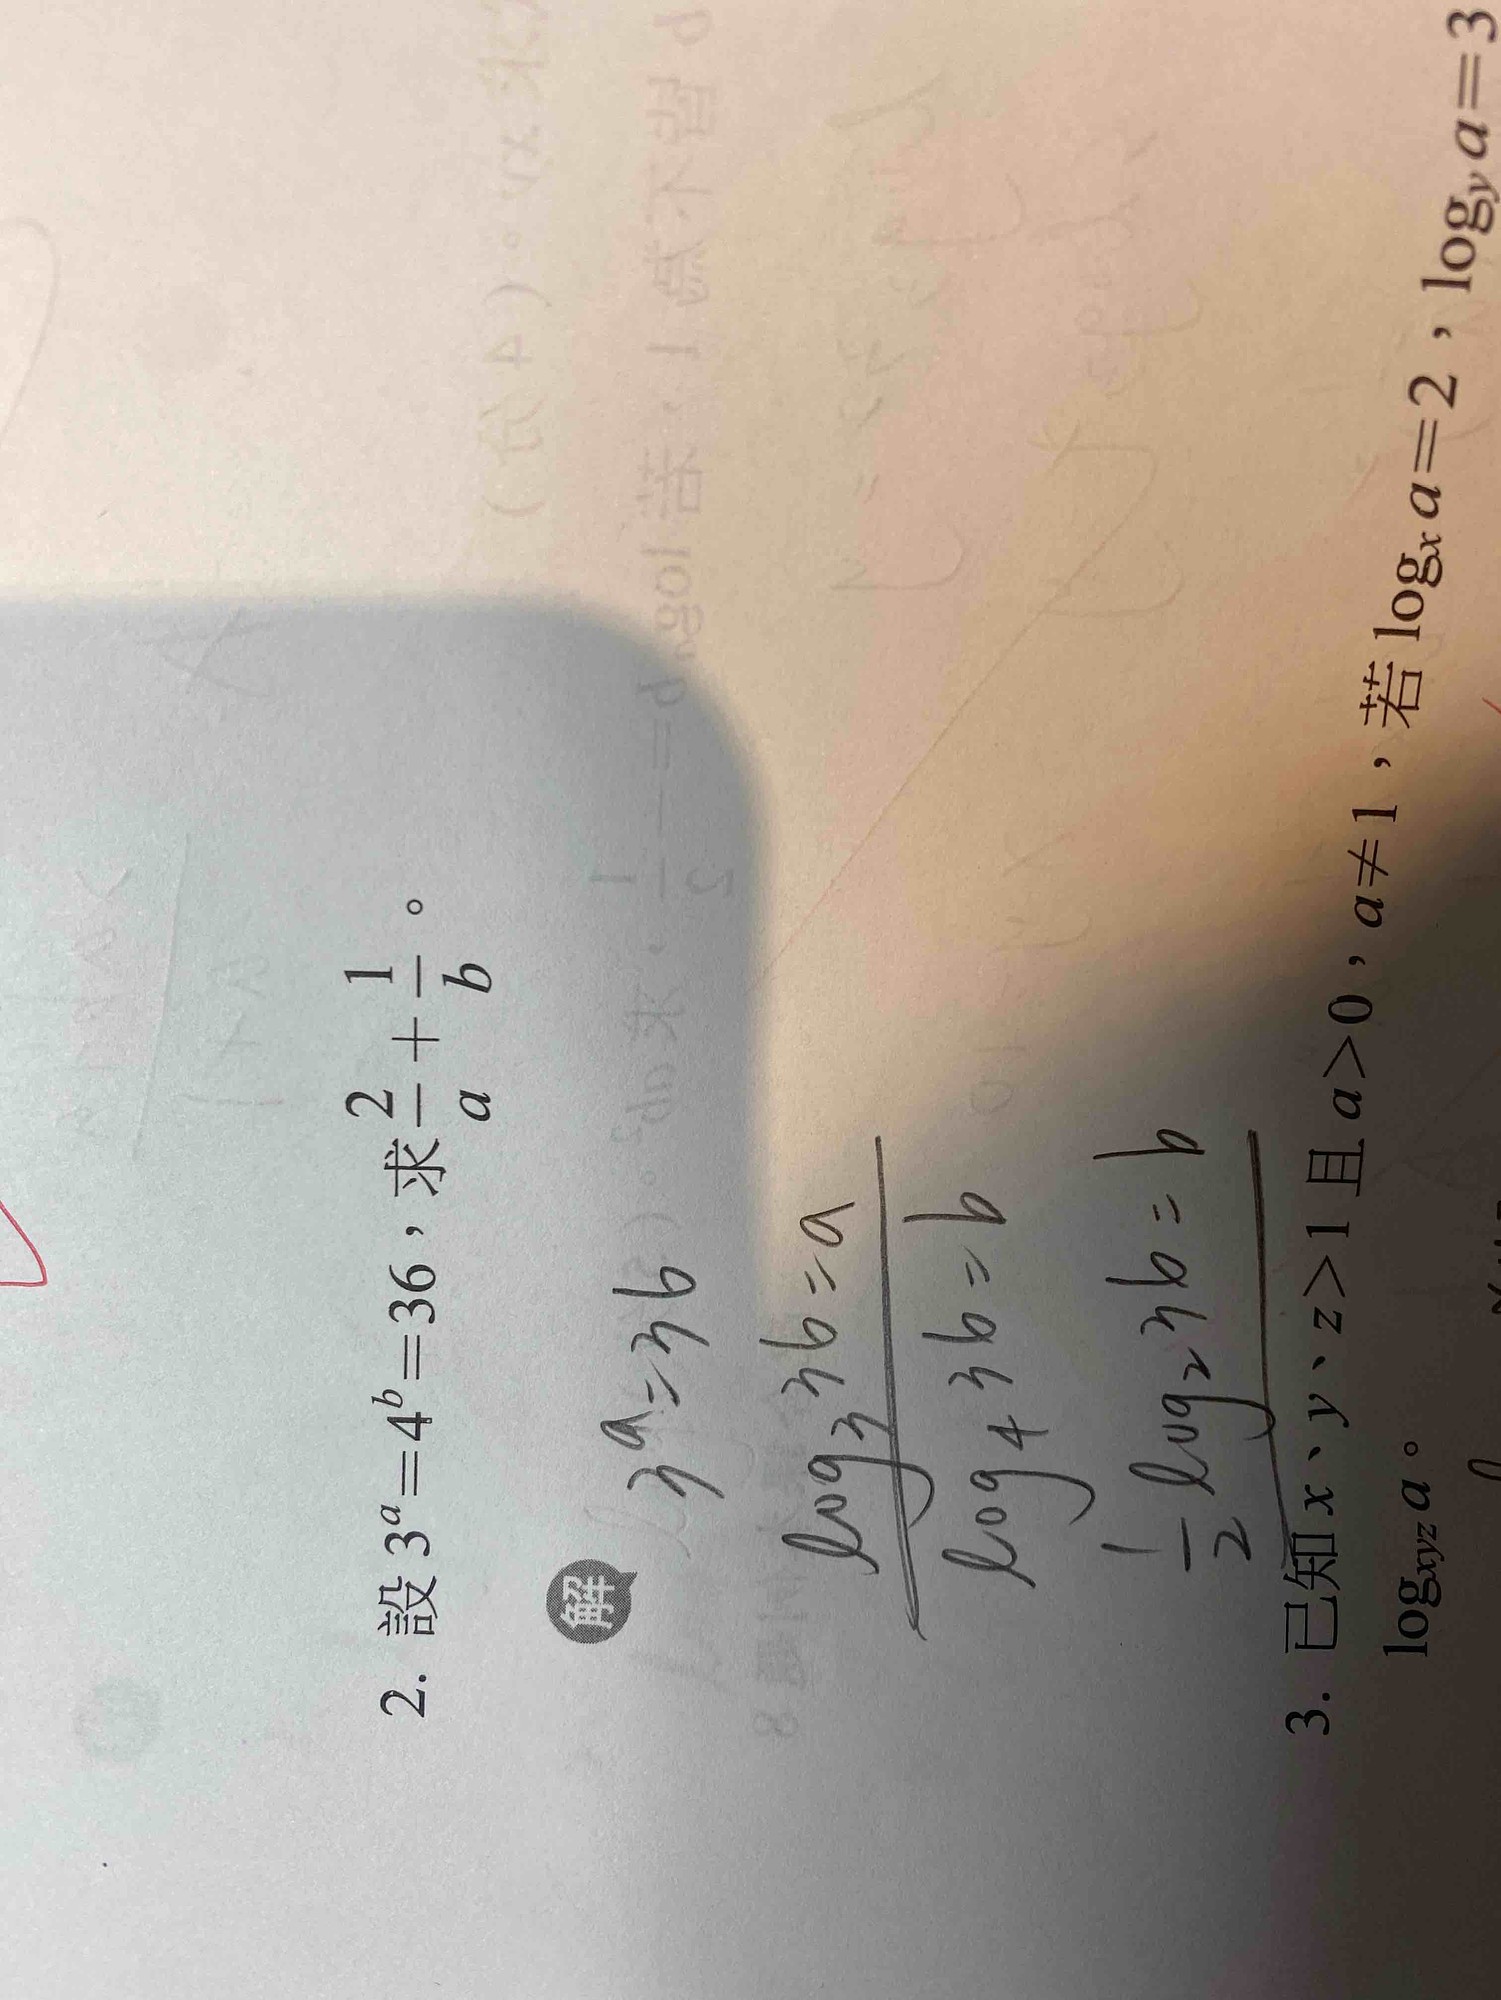 2. 設 3ᵃ=4ᵇ=36，求 2/a + 1/b 。
解
3ᵃ=36
log₃36=a
log₄36=b
1/2 log₂36=b
3. 已知 x、y、z>1 且 a>0，a≠1，若 logₓ a=2，log_y a=3
log_xyz a。